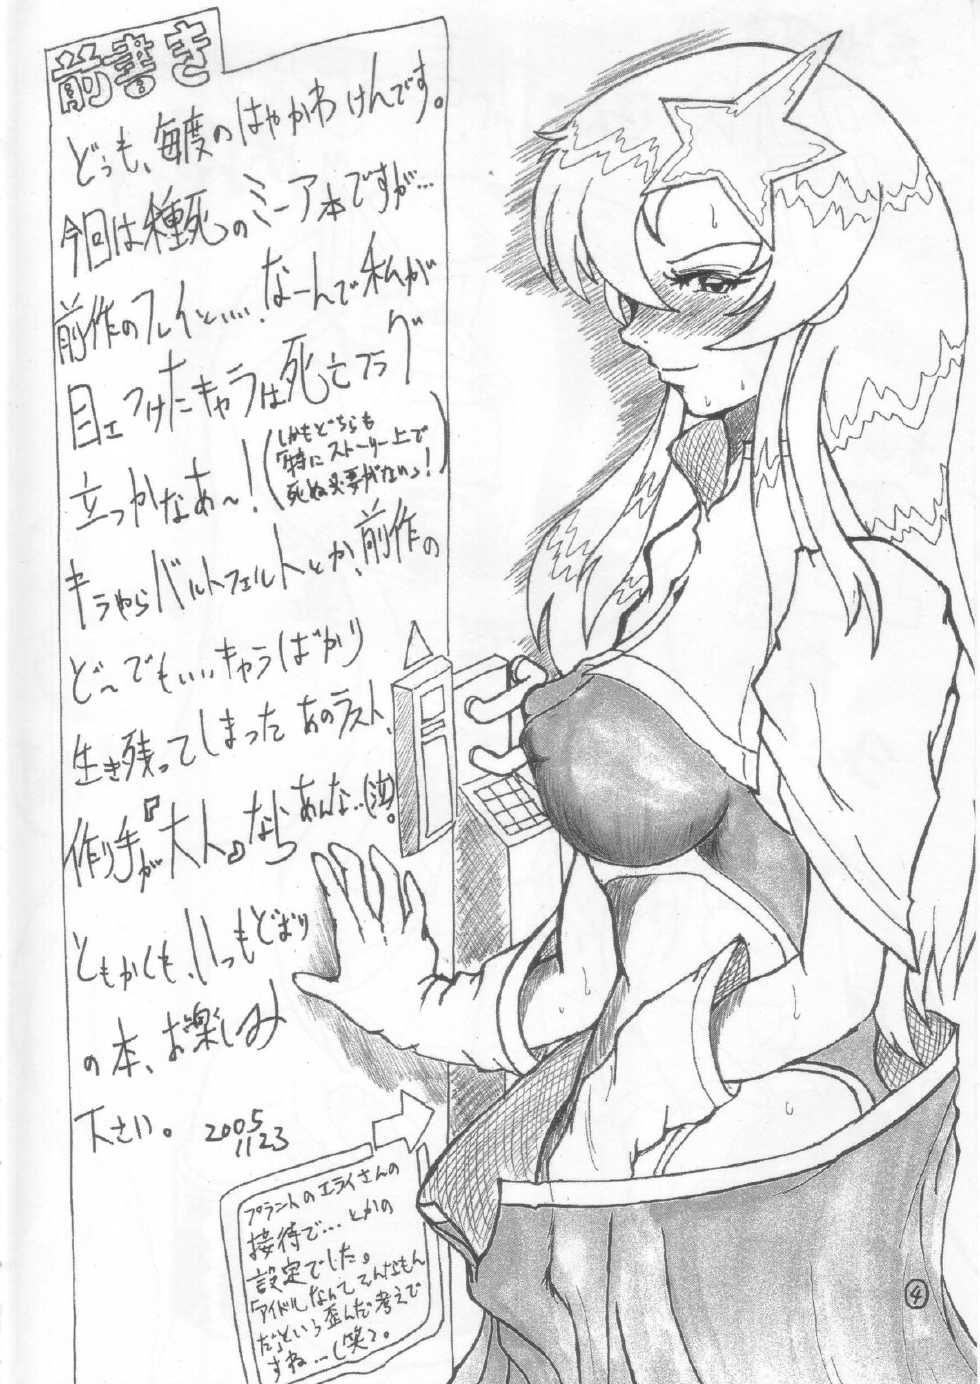 前書き
どうも、毎度のはやかわけんです。
今回は種死のミーア本ですが…
前作のフレイといい、なーんで私が
目エつけたキャラは死亡フラグ
立つかなあ〜!(しかもどちらも
特にストーリー上で
死ぬ必要がないっ!)
キラやらバルトフェルトとか、前作の
ど〜でもいいキャラばかり
生き残ってしまったあのラスト、
作り手が『大人』ならあんな…(泣)。
ともかくも、いつもどおり
の本、お楽しみ
下さい。 2005
1123
プラントのエライさんの
接待で…とかの
設定でした。
アイドルなんてそんなもん
だという歪んだ考えで
すね…(笑)。
4